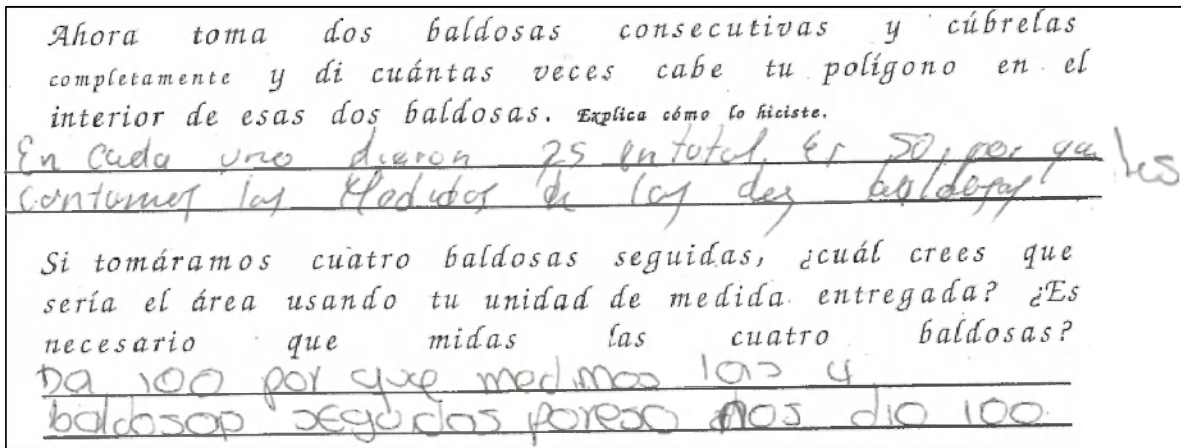 Ahora toma dos baldosas consecutivas y cúbrelas
completamente y di cuántas veces cabe tu polígono en el
interior de esas dos baldosas. Explica cómo lo hiciste.
En cada uno dieron 25 en total, Er 50, por que les
contamos las Medidas de las dos baldosas
Si tomáramos cuatro baldosas seguidas, ¿cuál crees que
sería el área usando tu unidad de medida entregada? ¿Es
necesario que midas las cuatro baldosas?
Da 100 por que medimos las 4
baldosas segidas por eso nos dio 100